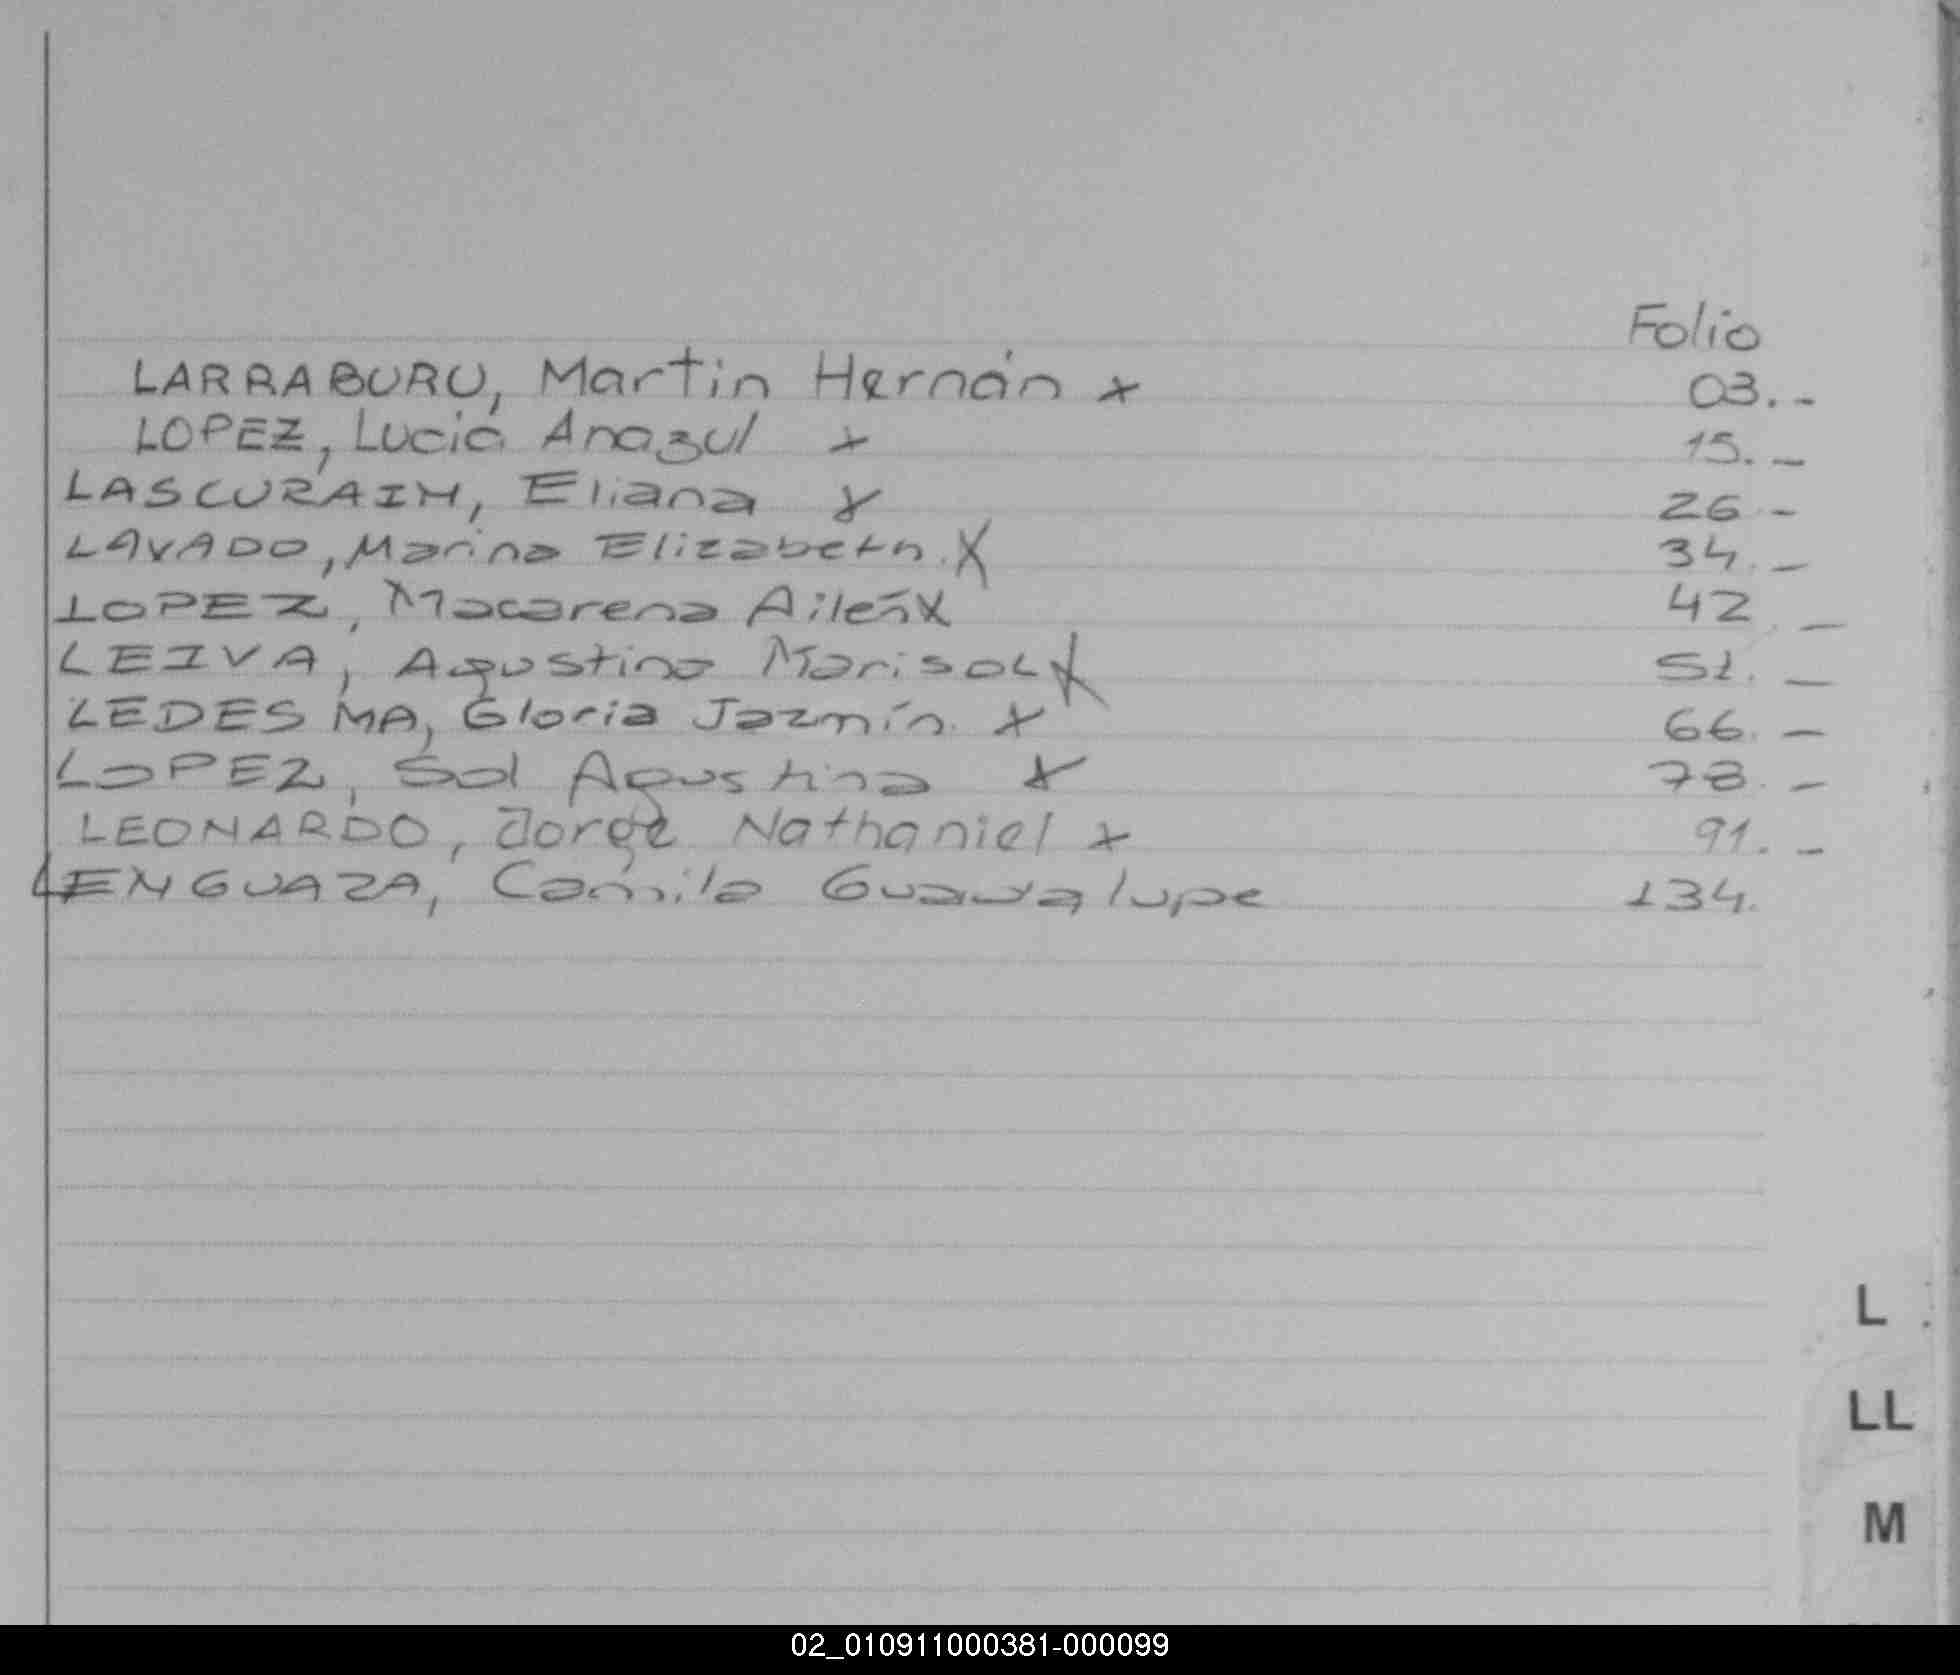 Folio
LARRABURU, Martín Hernán x 03.-
LOPEZ, Lucia Anazul x 15.-
LASCURAIN, Eliana x 26-
LAVADO, Marina Elizabeth. X 34.-
LOPEZ, Macarena Ailén X 42.-
LEIVA, Agustina Marisol X 51.-
LEDESMA, Gloria Jazmín. x 66.-
LOPEZ, Sol Agustina x 78.-
LEONARDO, Jorge Nathaniel x 91.-
LENGUAZA, Camila Guadalupe 134.
L
LL
M
02_010911000381-000099